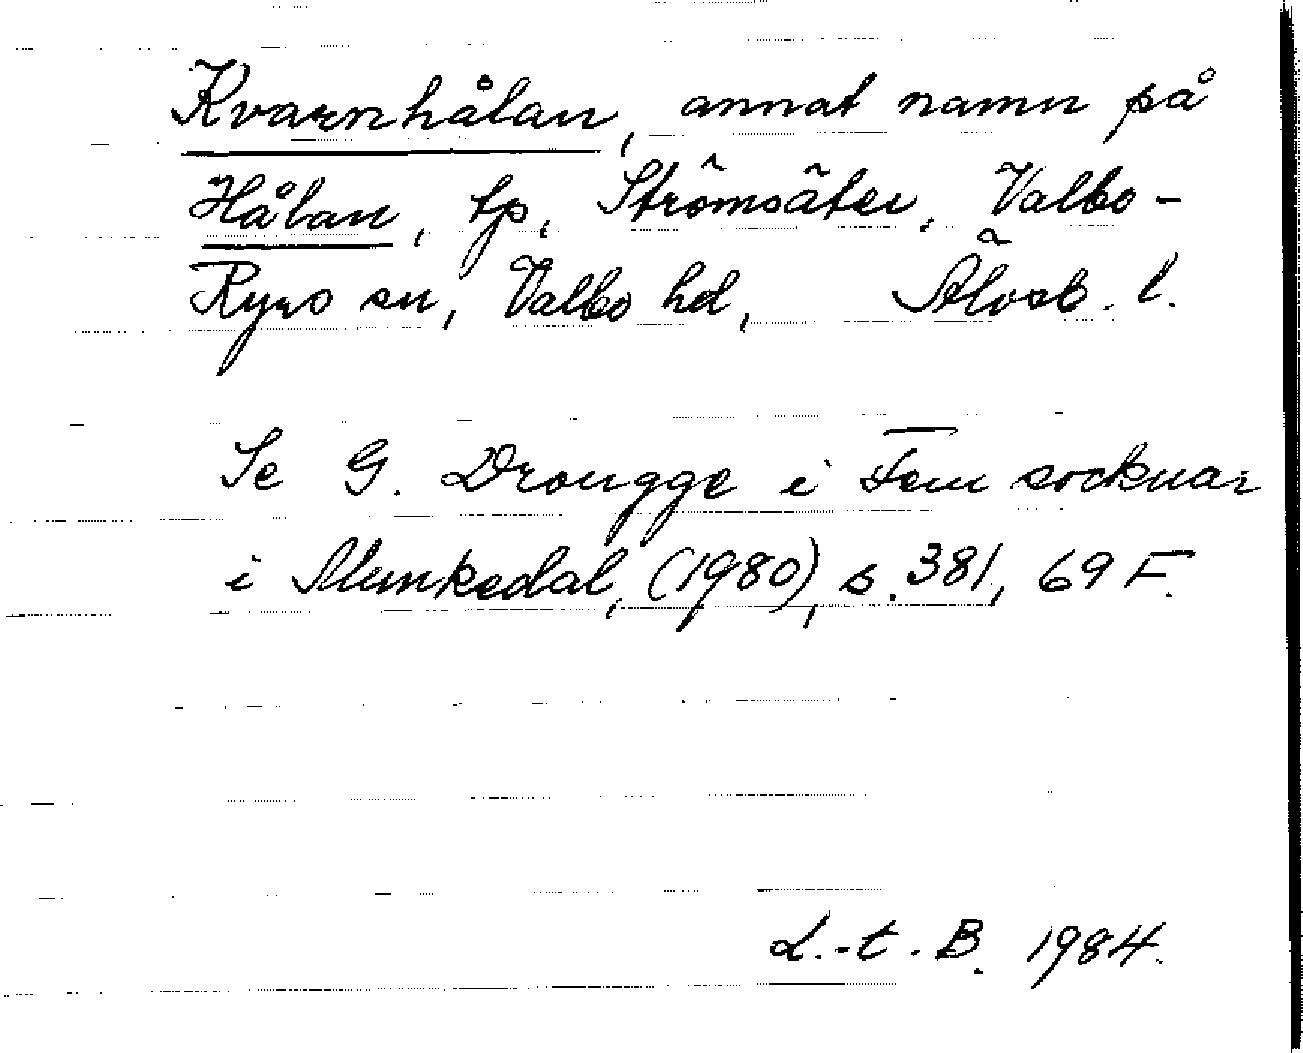 Kvarnhålan, annat namn på
Hålan, tp, Strömsäter, Valbo-
Ryrs sn, Valbo hd, Älvsb. l.
Se G. Drougge i Fem socknar
i Munkedal, (1980), s. 381, 69 F.
L.-t. B. 1984.